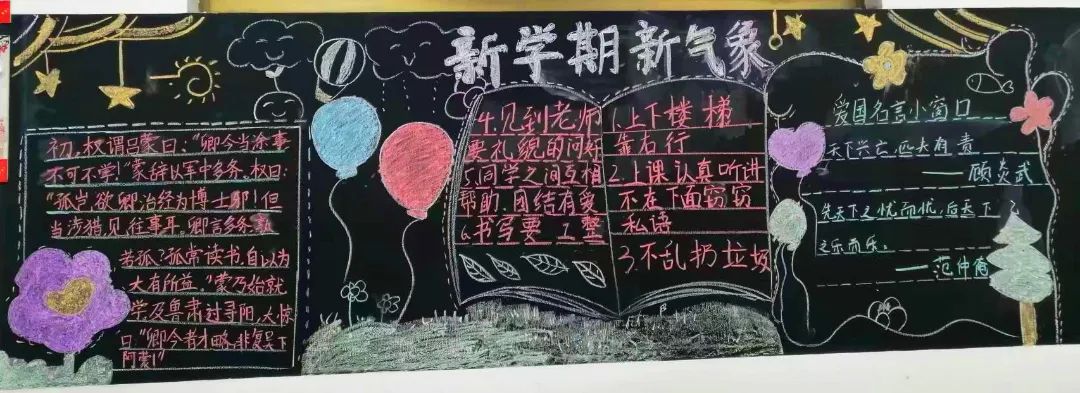 新学期新气象
初，权谓吕蒙曰："卿今当涂事
不可不学！"蒙辞以军中多务，权曰：
"孤岂欲卿治经为博士邪！但
当涉猎，见往事耳。卿言多务，孰
若孤？孤常读书，自以为
大有所益。"蒙乃始就
学及鲁肃过寻阳，大惊
曰："卿今者才略，非复吴下
阿蒙！"
1.上下楼梯
靠右行
2.上课认真听讲
不在下面窃窃
私语
3.不乱扔垃圾
4.见到老师
要礼貌的问好
5.同学之间互相
帮助，团结有爱
6.书写要工整
爱国名言小窗口
天下兴亡，匹夫有责
——顾炎武
先天下之忧而忧，后天下
之乐而乐。
——范仲淹